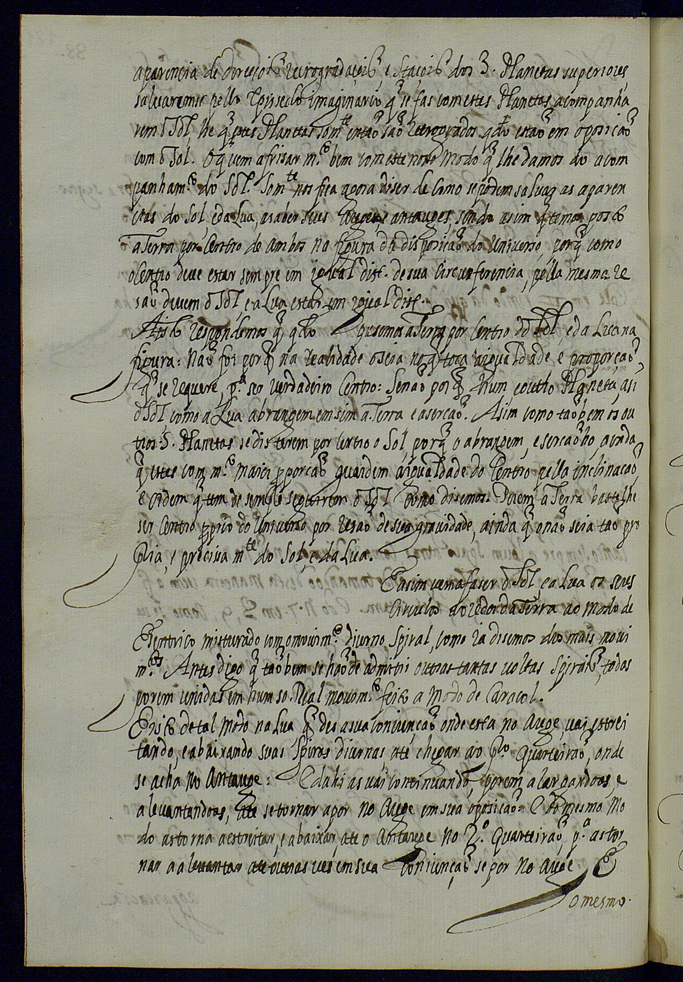 aparencia de Direçõis retrogradaçõis e Staçõis dos 3. Planetas superiores
salvaremos pello Epiciclo imaginario q̃ se fas com estes Planetas acompanha
rem o Sol
com o Sol. O q̃ vem a frisar m.to bem com este nosso modo q̃ lhe damos do acom
panham.to do Sol. Som.te nos fica agora diser de como se podem salvar as aparen
cias do Sol e da Lua, a saber seus Auges, antauges sendo asim q̃ temos posto
a Terra por Centro de ambos na figura da disposiçaõ do Universo, porq̃ como
o Centro deve estar sempre em igoal dist.a de sua Circunferencia, pella mesma re
saõ devem o Sol e a Lua estar em igoal dist.a
A isto respondemos q̃ q.do pusemos a Terra por Centro do Sol e da Lua na
figura: Naõ foi porq̃ na realidade o seia igualdade e proporçaõ
q̃ se requere, p.a ser verdadeiro Centro: Senaõ porq̃ hum e outro Planeta, asi
o Sol como a Lua abrangem em sim a Terra e a sercaõ. Asim como taõbem os ou
tros 5. Planetas se disserem por Centro o Sol porq̃ o abrangem, e sercaõ, ainda
q̃ estes com m.to maior proporcaõ guardem a igualdade do Centro pella inclinacaõ
e ordem q̃ tem de sempre seguirem o Sol como disemos. Porem a Terra basta lhe
ser Centro do Universo por resaõ de sua gravidade, ainda q̃ naõ seia taõ pro
pria, e precisa m.te do Sol, e da Lua.
E asim vem a faser o Sol e a Lua os seus
Circulos ao redor da Terra ao modo de
Excentrico misturado com o movim.to diurno, Spiral, como ia disemos dos mais movi
m.tos Antes digo q̃ taõbem se haõ de admitir outras tantas voltas Spirais, todas
porem unidas em hum so Real movim.to feito a modo de Caracol.
E isto de tal modo na Lua q̃ des a sua Coniuncaõ onde esta no Auge vai estrei
tando, e abaixando suas Spiras diurnas até chegar ao p.ro Quarteiraõ, onde
se acha no Antauge: E dahi as vai continuando, porem alargandoas, e
alevantandoas, até se tornar a por no Auge em sua oposiçaõ. E do mesmo mo
do as torna a estreitar, e abaixar até o Antauge no 2.º Quarteiraõ, p.a as tor
nar a alevantar até outra ves em sua Coniunçaõ se por no Auge. E
o mesmo.